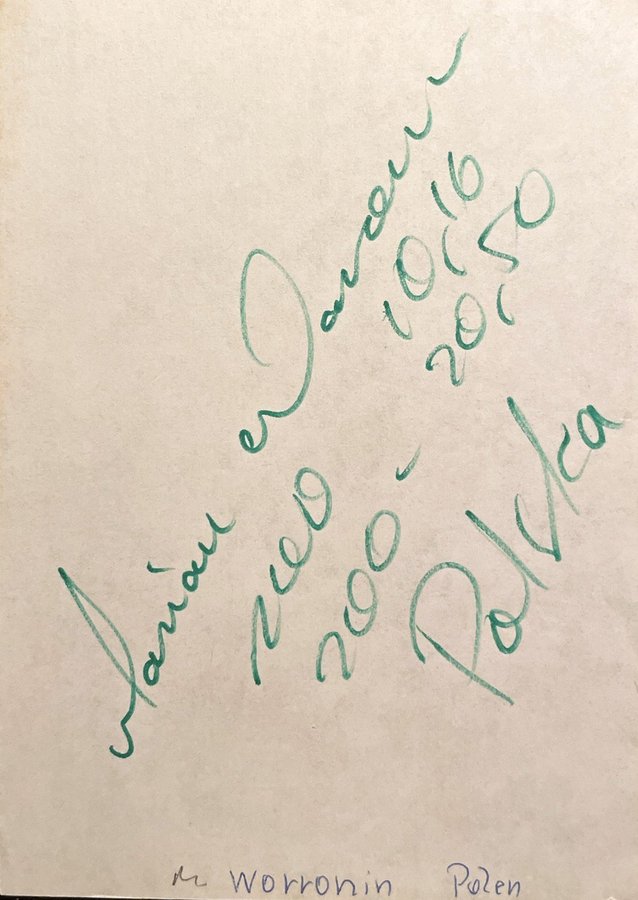 Marian Woronin
100 10,16
200 - 20,50
Polska
M Worronin Polen